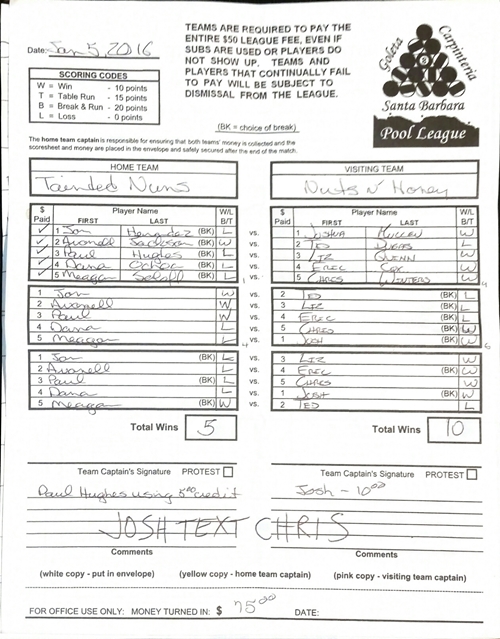 Date: Jan 5, 2016
TEAMS ARE REQUIRED TO PAY THE
ENTIRE $50 LEAGUE FEE, EVEN IF
SUBS ARE USED OR PLAYERS DO
NOT SHOW UP. TEAMS AND
PLAYERS THAT CONTINUALLY FAIL
TO PAY WILL BE SUBJECT TO
DISMISSAL FROM THE LEAGUE.
Goleta Carpinteria
Santa Barbara
Pool League
SCORING CODES
W = Win - 10 points
T = Table Run - 15 points
B = Break & Run - 20 points
L = Loss - 0 points
(BK = choice of break)
The home team captain is responsible for ensuring that both teams' money is collected and the
scoresheet and money are placed in the envelope and safely secured after the end of the match.
HOME TEAM
Tainted Nuns
VISITING TEAM
Nuts N' Honey
$ Paid Player Name FIRST LAST W/L B/T
$ Paid Player Name FIRST LAST W/L B/T
✓ 1 Jon (BK) L vs. 1 Joshua Mullen W
✓ 2 Avonell Jackson (BK) W vs. 2 Ted L
✓ 3 Paul Hughes (BK) L vs. 3 Liz Glenn W
✓ 4 Dana Ochoa (BK) L vs. 4 Eric Cox W
✓ 5 Meagan (BK) L 1 vs. 5 Chris Winters W 4
1 Jon W vs. 2 Ted (BK) L
2 Avonell W vs. 3 Liz (BK) L
3 Paul W vs. 4 Eric (BK) L
4 Dana L vs. 5 Chris (BK) W
5 Meagan L 4 vs. 1 Josh (BK) W 6
1 Jon (BK) L vs. 3 Liz W
2 Avonell L vs. 4 Eric (BK) W
3 Paul (BK) L vs. 5 Chris W
4 Dana L vs. 1 Josh (BK) W
5 Meagan (BK) W vs. 2 Ted L
Total Wins 5
Total Wins 10
Team Captain's Signature PROTEST
Team Captain's Signature PROTEST
Paul Hughes using 5.00 credit
Josh - 10.00
JOSH TEXT CHRIS
Comments
Comments
(white copy - put in envelope) (yellow copy - home team captain) (pink copy - visiting team captain)
FOR OFFICE USE ONLY: MONEY TURNED IN: $ 75.00 DATE: